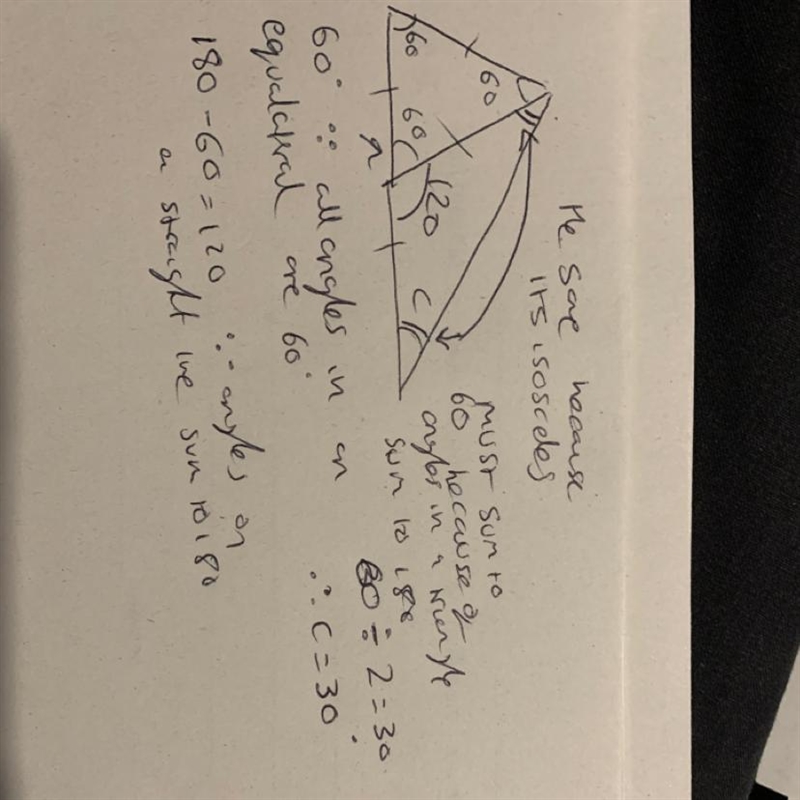 the same because
its isosceles
60
60
60
120
c
x
must sum to
60 because of
angles in a triangle
sum to 180
60 ÷ 2 = 30
∴ c = 30°
60° ∵ all angles in an
equilateral are 60°
180 - 60 = 120 ∵ angles on
a straight line sum to 180